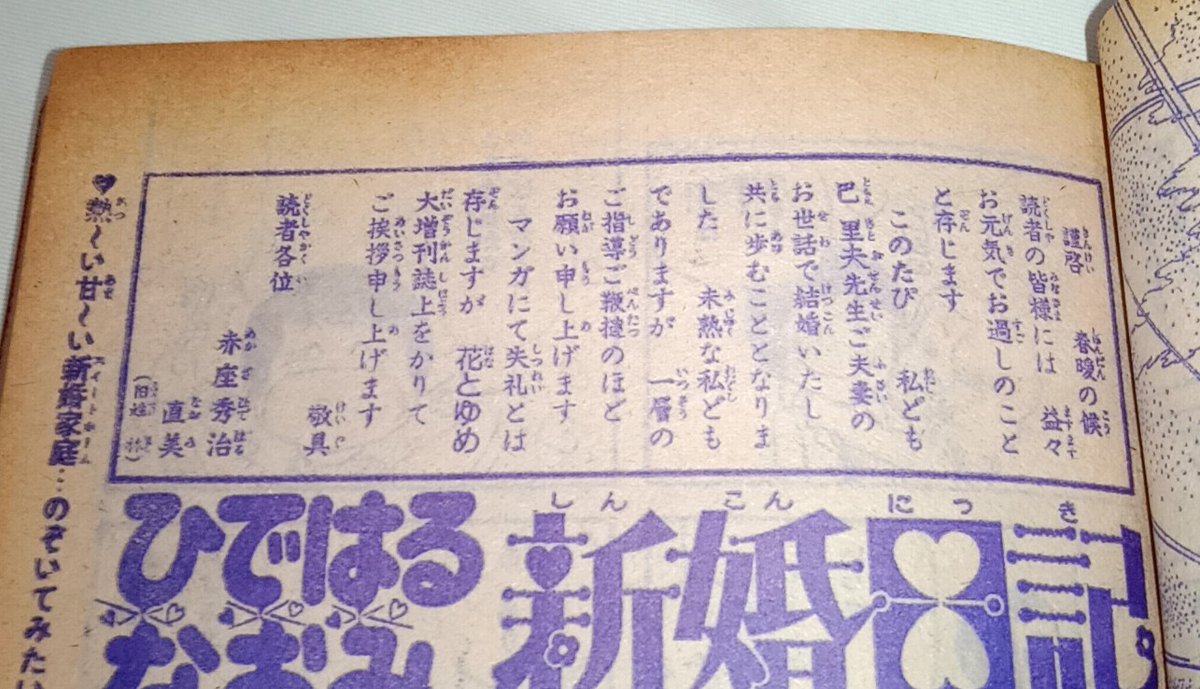 謹啓　春暖の候
読者の皆様には　益々
お元気でお過しのこと
と存じます
このたび　私ども
巴 里夫先生ご夫妻の
お世話で結婚いたし
共に歩むこととなりま
した　未熟な私ども
でありますが　一層の
ご指導ご鞭撻のほど
お願い申し上げます
マンガにて失礼とは
存じますが　花とゆめ
大増刊誌上をかりて
ご挨拶申し上げます
敬具
読者各位
赤座秀治
直美
♥熱～い甘～い新婚家庭…のぞいてみたい
新婚日記
ひではる
なおみ